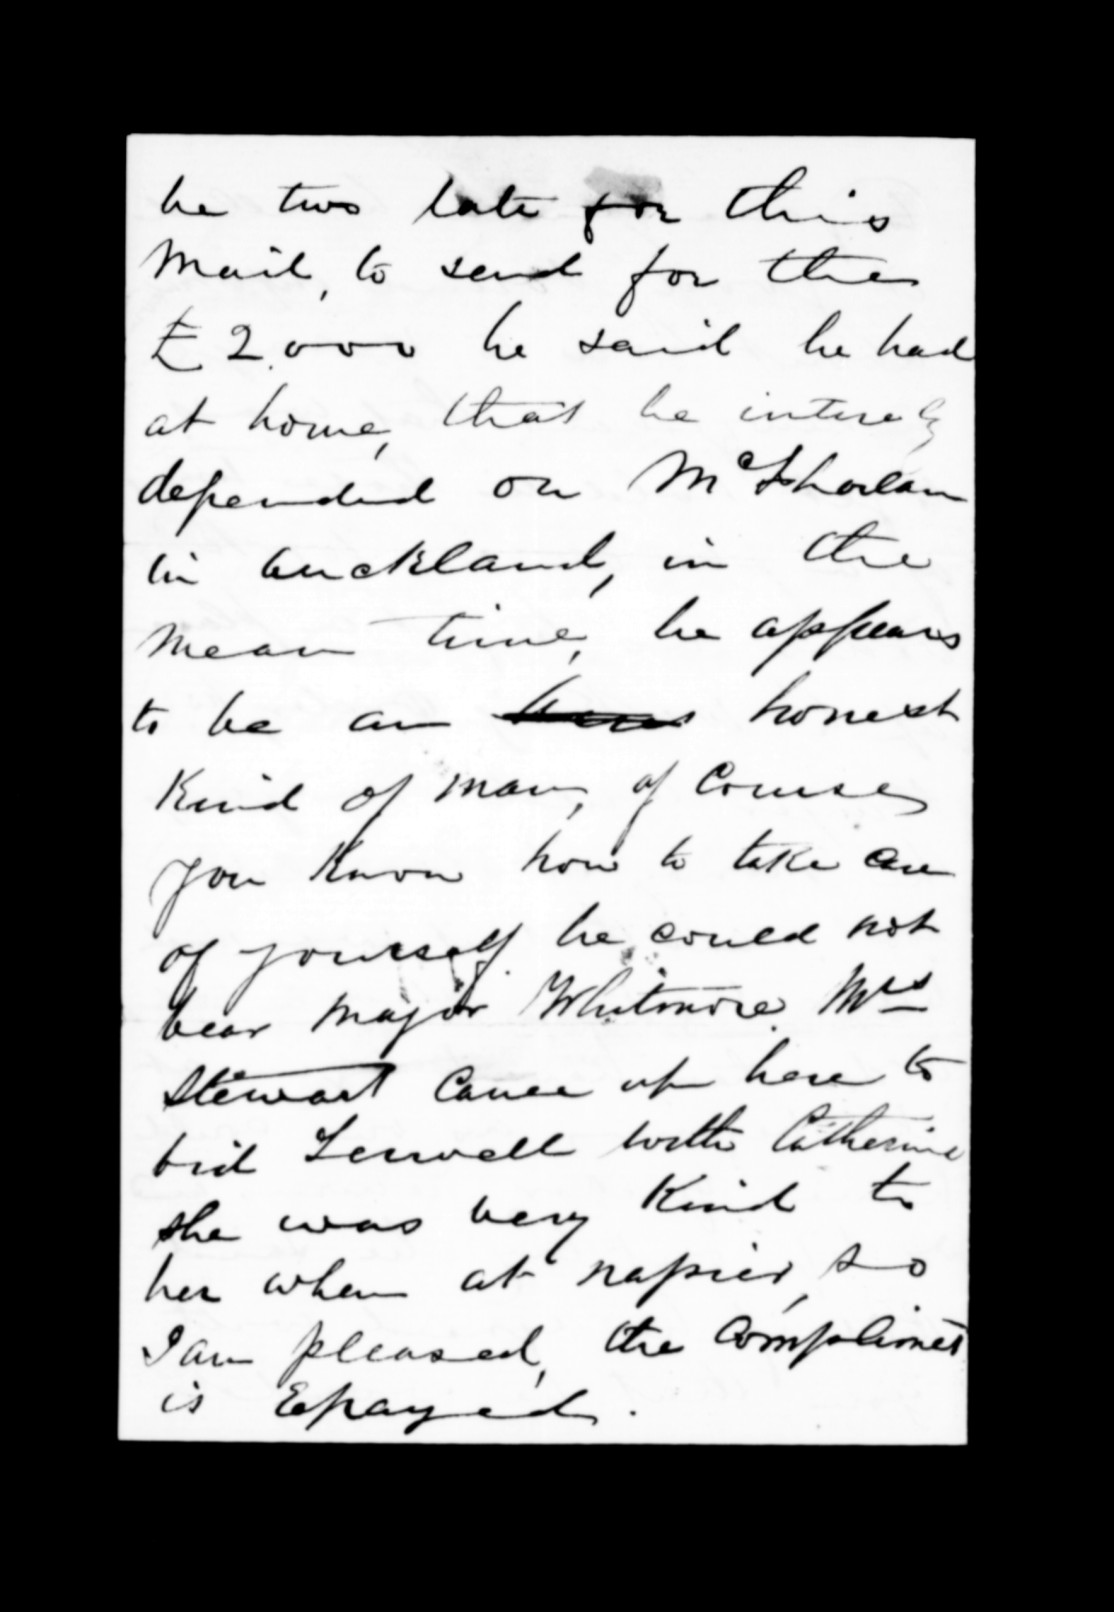 be two late for this
Mail, to send for the
£2.000 he said he had
at home, that he intirely
depended on
in auckland, in the
mean time, he appears
to be an honest
Kind of man, of Course
you Know how to take care
of yourself he could not
bear Major Whitmore Mrs
Stewart Came up here to
bid with Catherine
she was very Kind to
her when at napier, so
I am pleased, the Complimet
is Epayed.